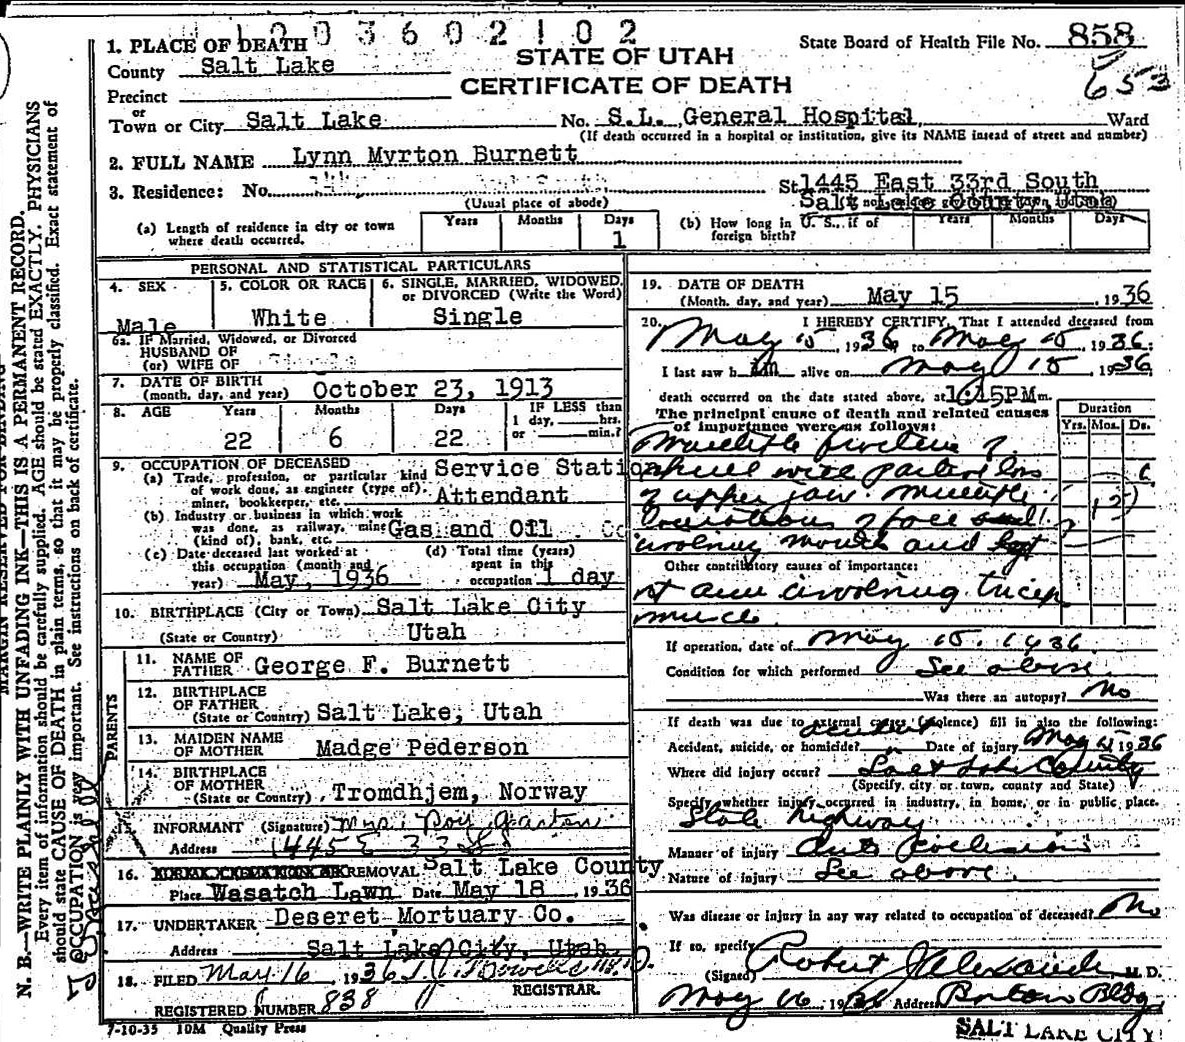 1003602102
State Board of Health File No. 858
653
STATE OF UTAH
CERTIFICATE OF DEATH
1. PLACE OF DEATH
County Salt Lake
Precinct
or
Town or City Salt Lake No. S.L. General Hospital Ward
(If death occurred in a hospital or institution, give its NAME instead of street and number)
2. FULL NAME Lynn Myrton Burnett
3. Residence: No. St. 1445 East 33rd South
(Usual place of abode) Salt Lake County, Utah
(a) Length of residence in city or town where death occurred. Years Months Days 1
(b) How long in U. S., if of foreign birth? Years Months Days
PERSONAL AND STATISTICAL PARTICULARS
4. SEX Male
5. COLOR OR RACE White
6. SINGLE, MARRIED, WIDOWED, or DIVORCED (Write the Word) Single
6a. IF Married, Widowed, or Divorced
HUSBAND OF
(or) WIFE OF
7. DATE OF BIRTH
(month, day, and year) October 23, 1913
8. AGE Years 22 Months 6 Days 22 IF LESS than 1 day, hrs. or min.?
9. OCCUPATION OF DECEASED
(a) Trade, profession, or particular kind of work done, as engineer (type of), miner, bookkeeper, etc. Service Station Attendant
(b) Industry or business in which work was done, as railway, mine (kind of), bank, etc. Gas and Oil Co
(c) Date deceased last worked at this occupation (month and year) May, 1936
(d) Total time (years) spent in this occupation 1 day
10. BIRTHPLACE (City or Town) Salt Lake City
(State or Country) Utah
PARENTS
11. NAME OF FATHER George F. Burnett
12. BIRTHPLACE OF FATHER
(State or Country) Salt Lake, Utah
13. MAIDEN NAME OF MOTHER Madge Pederson
14. BIRTHPLACE OF MOTHER
(State or Country) Tromdhjem, Norway
15. INFORMANT (Signature) Mrs. Roy
Address 1445 E 33 S
16. REMOVAL Salt Lake County
Place Wasatch Lawn Date May 18, 1936
17. UNDERTAKER Deseret Mortuary Co.
Address Salt Lake City, Utah
18. FILED May 16, 1936
REGISTRAR.
REGISTERED NUMBER 838
7-10-35 10M Quality Press
19. DATE OF DEATH
(Month, day, and year) May 15, 1936
20. I HEREBY CERTIFY, That I attended deceased from
May 15, 1936, to May 15, 1936;
I last saw him alive on May 15, 1936
death occurred on the date stated above, at PM m.
The principal cause of death and related causes of importance were as follows:
Duration
Yrs. Mos. Ds.
Multiple fracture of
skull with partial loss
of upper jaw. Multiple
lacerations of face
involving mouth and
Other contributory causes of importance:
rt arm involving tricep
muscle.
If operation, date of May 15, 1936
Condition for which performed See above
Was there an autopsy? No
If death was due to external causes (violence) fill in also the following:
Accident, suicide, or homicide? accident Date of injury May 1936
Where did injury occur? Salt Lake County
(Specify city or town, county and State)
Specify whether injury occurred in industry, in home, or in public place.
State highway
Manner of injury Auto collision
Nature of injury See above.
Was disease or injury in any way related to occupation of deceased? No
If so, specify
(Signed) Robert J Alexander, M. D.
May 16, 1936 Address Boston Bldg
SALT LAKE CITY
MARGIN RESERVED FOR BINDING
N. B.—WRITE PLAINLY WITH UNFADING INK—THIS IS A PERMANENT RECORD.
Every item of information should be carefully supplied. AGE should be stated EXACTLY. PHYSICIANS
should state CAUSE OF DEATH in plain terms, so that it may be properly classified. Exact statement of
OCCUPATION is very important. See instructions on back of certificate.